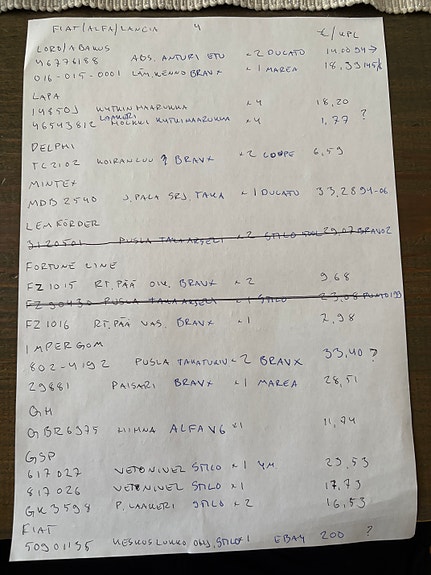 FIAT/ALFA/LANCIA 4 €/KPL
LORO/ABAKUS
46776188 ABS. ANTURI ETU ×2 DUCATO 14.00 94→
016-015-0001 LÄM.KENNO BRAVX ×1 MAREA 18,39
LAPA
148501 KYTKINHAARUKKA ×4 18,20
LAAKERI
46543812 HOLKKI KYTKINHAARUKKA ×4 1,77 ?
DELPHI
TC2102 KOIRANLUU BRAVX ×2 COUPE 6,59
MINTEX
MDB 2540 J.PALA SRJ. TAKA ×1 DUCATO 33,28 94-06
LEMFÖRDER
3120501 PUSLA TAKA AKSELI ×2 STILO 29,07 BRAVO2
FORTUNE LINE
FZ1015 RT.PÄÄ OIK. BRAVX ×2 9,68
FZ90430 PUSLA TAKA AKSELI ×1 STILO 23,08 PUNTO 199
FZ1016 RT.PÄÄ VAS. BRAVX ×1 7,98
IMPERGOM
802-4192 PUSLA TAKATUKIV ×2 BRAVX 33,40 ?
29881 PAISARI BRAVX ×1 MAREA 28,51
GH
GBR6375 HIHNA ALFA V6 ×1 11,74
GSP
617027 VETONIVEL STILO ×1 YM. 29,53
817026 VETONIVEL STILO ×1 17,73
GK3598 P.LAAKERI STILO ×2 16,53
FIAT
50901195 KESKUSLUKKO OHJ. STILO ×1 EBAY 200 ?